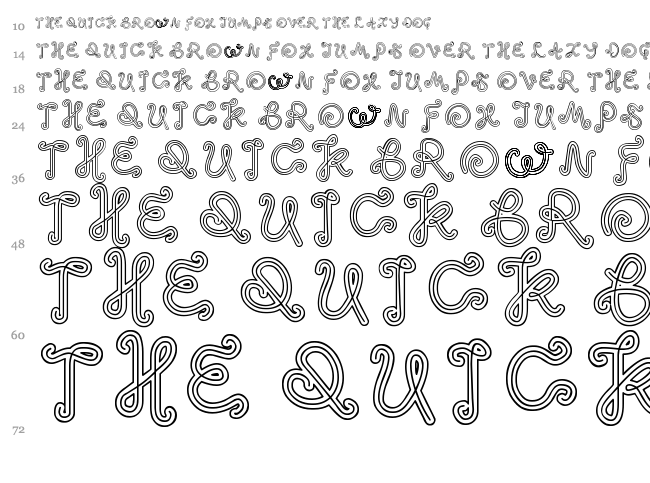 10 THE QUICK BROWN FOX JUMPS OVER THE LAZY DOG
14 THE QUICK BROWN FOX JUMPS OVER THE LAZY DOG
18 THE QUICK BROWN FOX JUMPS OVER THE
24 THE QUICK BROWN FOX JUMPS
36 THE QUICK BROWN F
48 THE QUICK BRO
60 THE QUICK B
72 THE QUICK